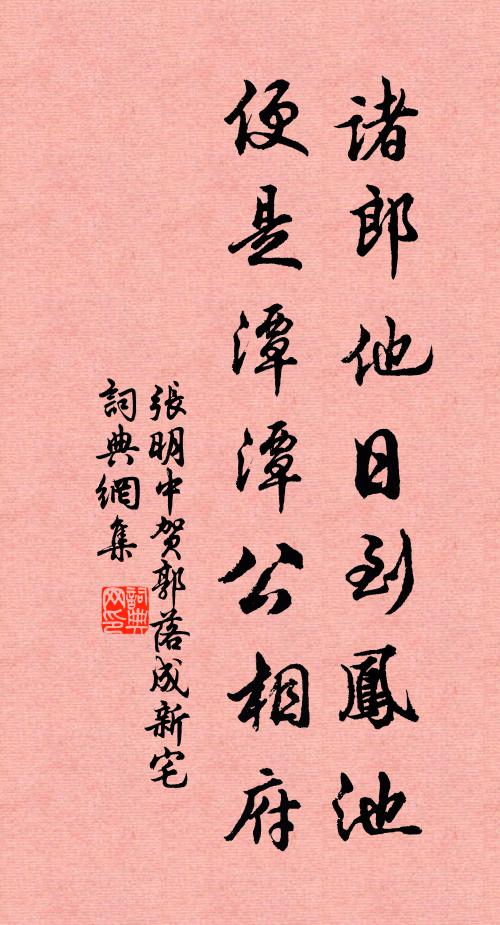 諸郎他日到鳳池
便是潭潭公相府
張明中賀郭落成新宅
詞典網集
詞典網印